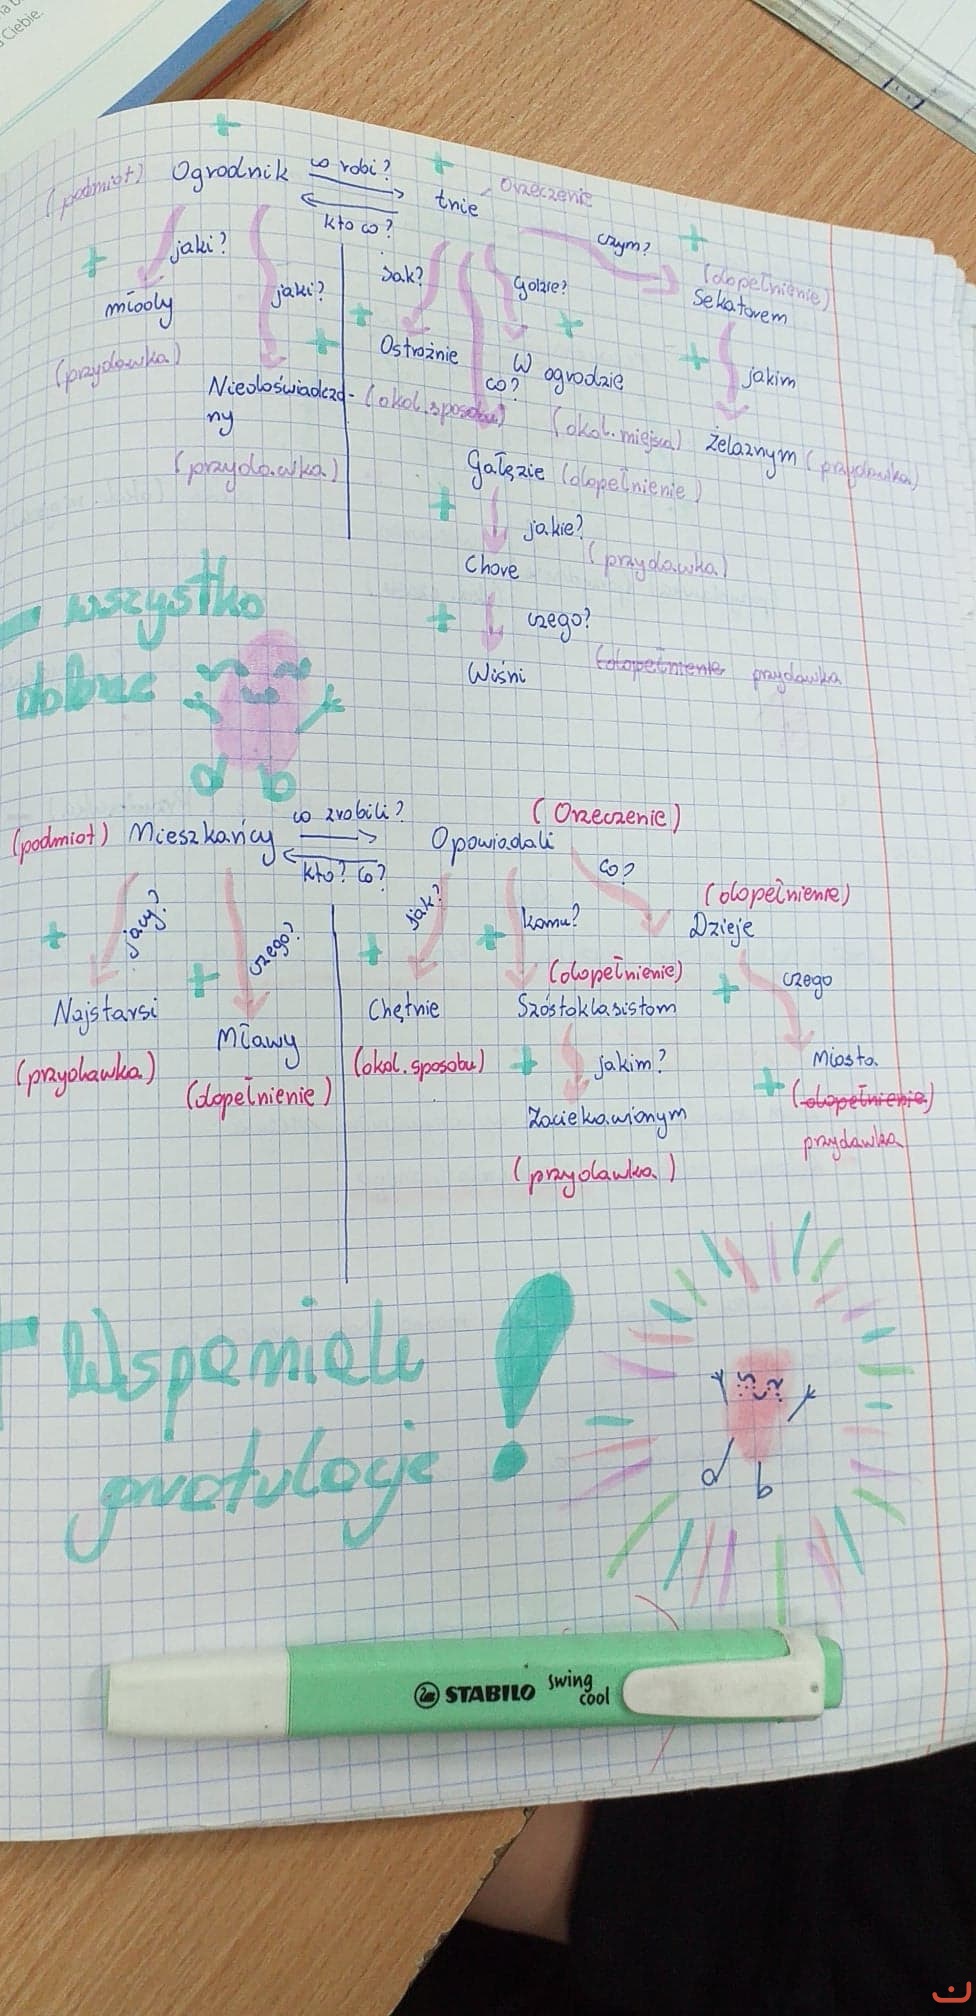 Ciebie.
(podmiot) Ogrodnik co robi? tnie Orzeczenie
kto co?
jaki? jaki? Jak? Gdzie? czym?
(dopełnienie)
młody Sekatorem
Ostrożnie W ogrodzie jakim
(przydawka) co?
Niedoświadcz- (okol. sposobu) (okol. miejsca) żelaznym (przydawka)
ny
(przydawka) Gałęzie (dopełnienie)
jakie?
Chore (przydawka)
- wszystko czego?
dobrze Wiśni (dopełnienie przydawka
(podmiot) Mieszkańcy co zrobili? Opowiadali (Orzeczenie)
kto? co?
jacy? czego? jak? komu? co?
(dopełnienie)
Dzieje
(dopełnienie) czego
Najstarsi Mławy Chętnie Szóstoklasistom Miasta
(przydawka) (dopełnienie) (okol. sposobu) jakim? (dopełnienie)
Zaciekawionym przydawka
(przydawka)
- Wspaniale
gratulacje !
STABILO swing
cool